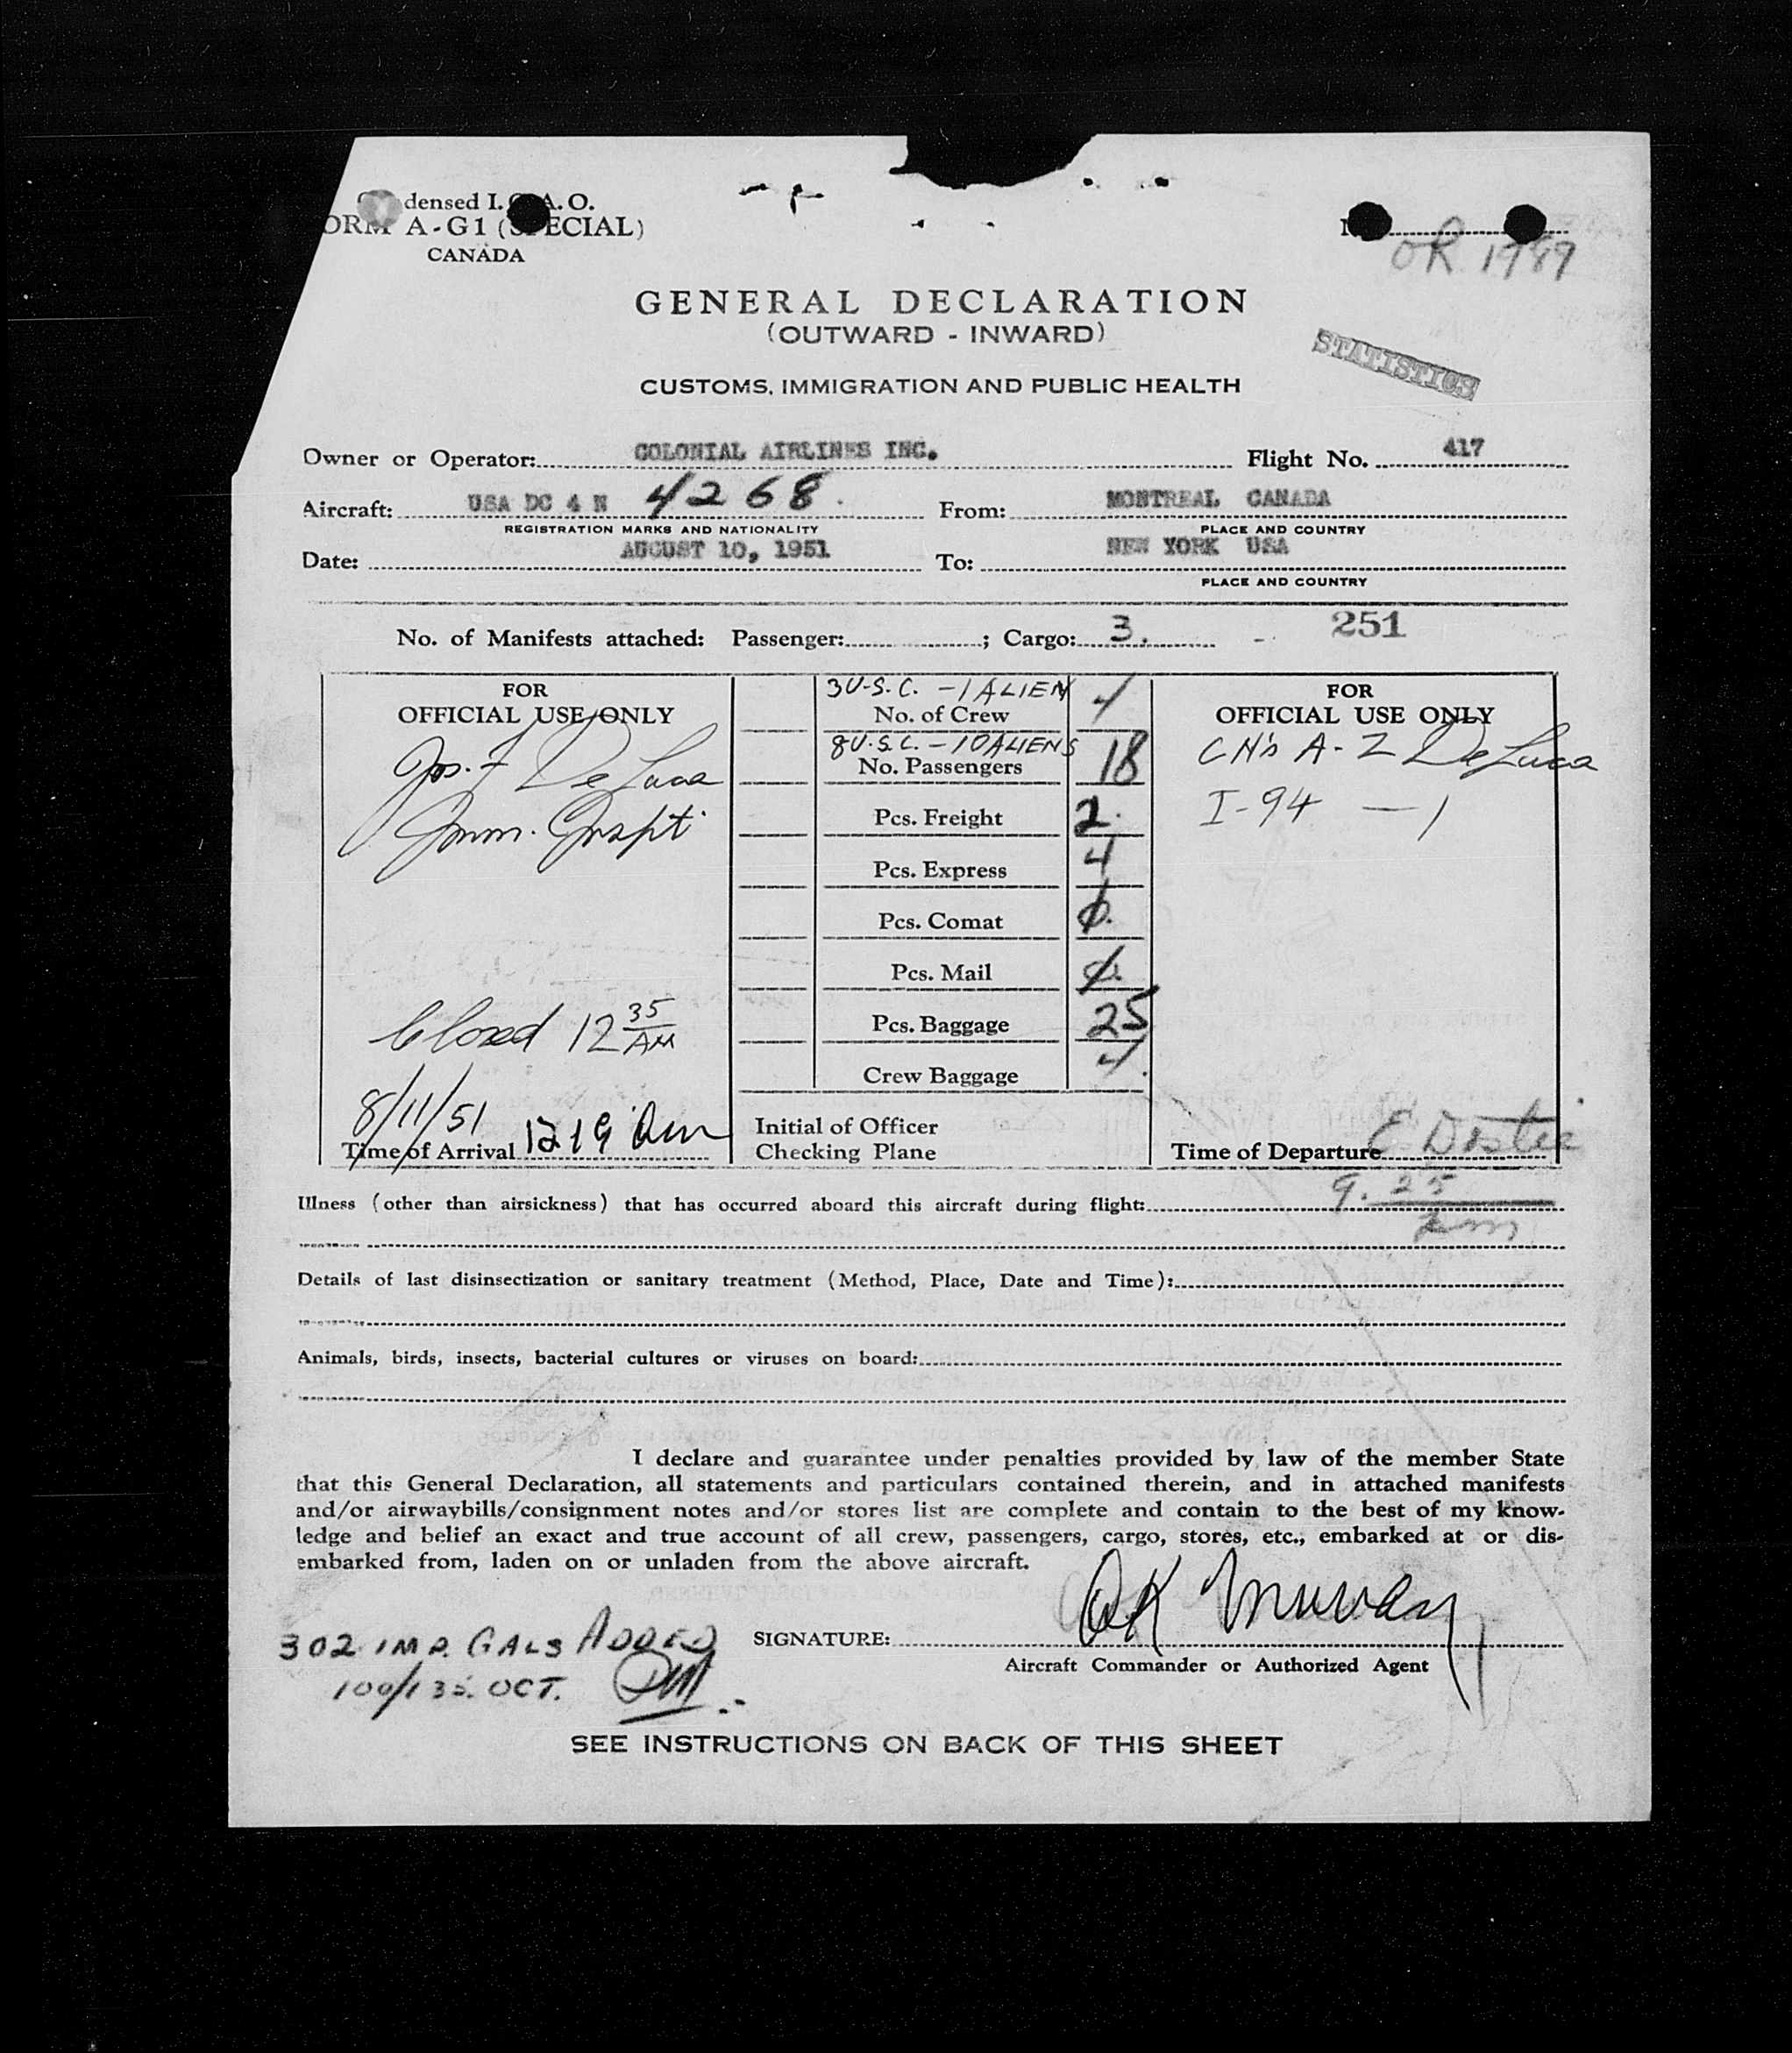 densed I. A. O.
FORM A-G1 (SPECIAL)
CANADA
OR 1989
GENERAL DECLARATION
(OUTWARD - INWARD)
STATISTICS
CUSTOMS, IMMIGRATION AND PUBLIC HEALTH
Owner or Operator: COLONIAL AIRLINES INC. Flight No. 417
Aircraft: USA DC 4 N 4268. From: MONTREAL CANADA
REGISTRATION MARKS AND NATIONALITY PLACE AND COUNTRY
Date: AUGUST 10, 1951 To: NEW YORK USA
PLACE AND COUNTRY
No. of Manifests attached: Passenger: ; Cargo: 3. - 251
FOR
OFFICIAL USE ONLY
Jos. F De Luca
Imm. Inspt.
Closed 12 35 AM
8/11/51
Time of Arrival 12 19 am
3 U.S.C. - 1 ALIEN
No. of Crew 4
8 U.S.C. - 10 ALIENS
No. Passengers 18
Pcs. Freight 2.
Pcs. Express 4
Pcs. Comat 0.
Pcs. Mail 0.
Pcs. Baggage 25
Crew Baggage 4.
Initial of Officer
Checking Plane
FOR
OFFICIAL USE ONLY
CN's A-Z De Luca
I-94 — 1
Time of Departure E
9. 25
Illness (other than airsickness) that has occurred aboard this aircraft during flight:
Details of last disinsectization or sanitary treatment (Method, Place, Date and Time):
Animals, birds, insects, bacterial cultures or viruses on board:
I declare and guarantee under penalties provided by law of the member State
that this General Declaration, all statements and particulars contained therein, and in attached manifests
and/or airwaybills/consignment notes and/or stores list are complete and contain to the best of my know-
ledge and belief an exact and true account of all crew, passengers, cargo, stores, etc., embarked at or dis-
embarked from, laden on or unladen from the above aircraft.
302 IMP. GALS ADDED
100/135. OCT.
SIGNATURE: OK Murray
Aircraft Commander or Authorized Agent
SEE INSTRUCTIONS ON BACK OF THIS SHEET